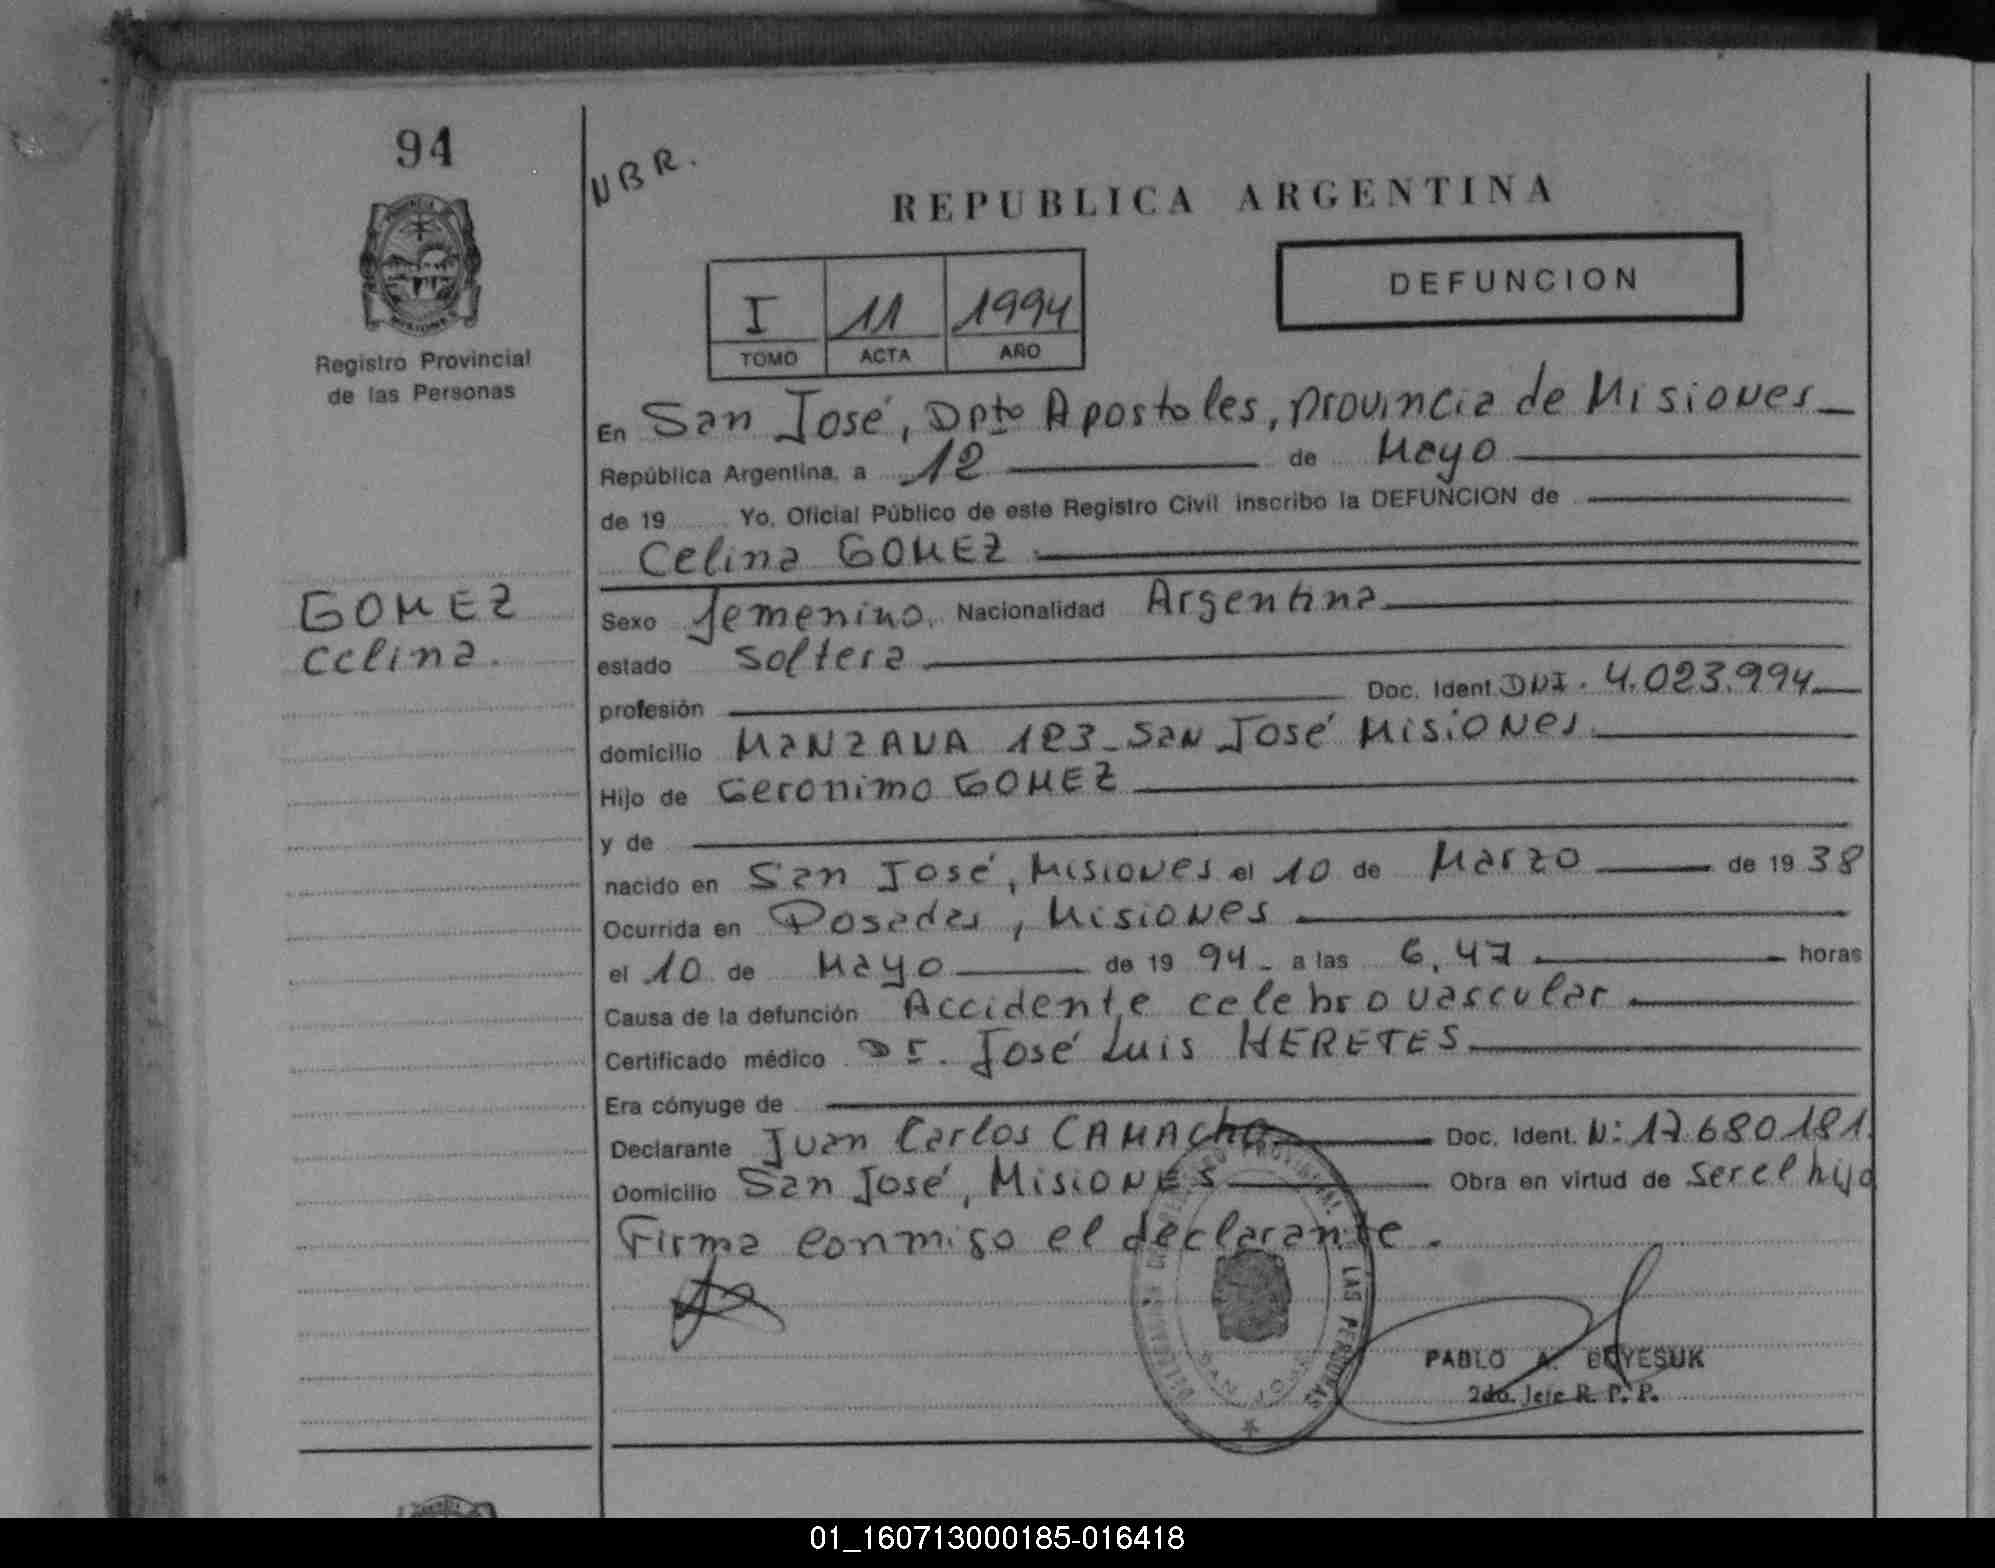 94
Registro Provincial
de las Personas
GOMEZ
Celina.
NBR.
REPUBLICA ARGENTINA
I 11 1994
TOMO ACTA AÑO
DEFUNCION
En San José, Dpto Apostoles, provincia de Misiones
República Argentina, a 12 de Mayo
de 19 Yo, Oficial Público de este Registro Civil inscribo la DEFUNCION de
Celina GOMEZ
Sexo femenino. Nacionalidad Argentina
estado soltera
profesión Doc. Ident. DNI. 4.023.994
domicilio MANZANA 123 - San José Misiones
Hijo de Geronimo GOMEZ
y de
nacido en San José, Misiones el 10 de Marzo de 19 38
Ocurrida en Posadas, Misiones
el 10 de Mayo de 19 94 - a las 6,47 horas
Causa de la defunción Accidente celebrovascular
Certificado médico Dr. José Luis HERETES
Era cónyuge de
Declarante Juan Carlos CAMACHO Doc. Ident. N: 17.680.181.
Domicilio San José, Misiones Obra en virtud de ser el hijo
Firma conmigo el declarante.
DELEGACION DEL REGISTRO PROVINCIAL DE LAS PERSONAS
SAN JOSE
PABLO A. BEYESUK
2do. Jefe R. P. P.
01_160713000185-016418